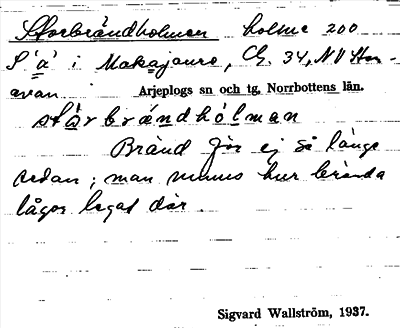 Storbrändholmen holme 200
S'a' i Makajaure, Ch. 34, NV Stor-
avan Arjeplogs sn och tg, Norrbottens län.
stårbrándhólman
Bränd för ej så länge
sedan; man minns hur brända
lågor legat där.
Sigvard Wallström, 1937.